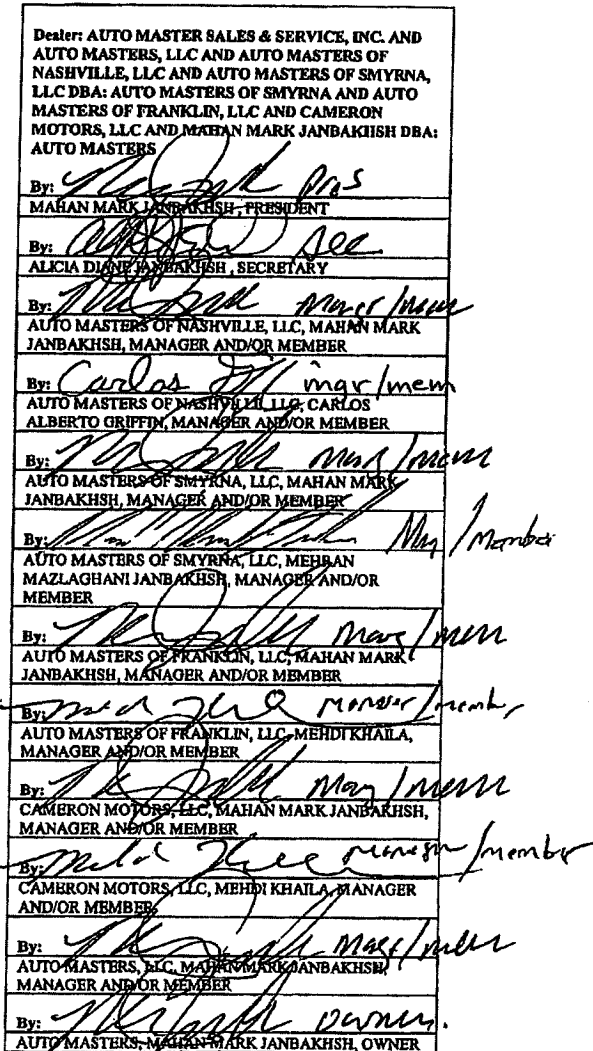 Dealer: AUTO MASTER SALES & SERVICE, INC. AND
AUTO MASTERS, LLC AND AUTO MASTERS OF
NASHVILLE, LLC AND AUTO MASTERS OF SMYRNA,
LLC DBA: AUTO MASTERS OF SMYRNA AND AUTO
MASTERS OF FRANKLIN, LLC AND CAMERON
MOTORS, LLC AND MAHAN MARK JANBAKHSH DBA:
AUTO MASTERS
By: Pres
MAHAN MARK JANBAKHSH, PRESIDENT
By: Sec
ALICIA DIANE JANBAKHSH, SECRETARY
By:
AUTO MASTERS OF NASHVILLE, LLC, MAHAN MARK
JANBAKHSH, MANAGER AND/OR MEMBER
By: Carlos mgr/mem
AUTO MASTERS OF NASHVILLE, LLC, CARLOS
ALBERTO GRIFFIN, MANAGER AND/OR MEMBER
By:
AUTO MASTERS OF SMYRNA, LLC, MAHAN MARK
JANBAKHSH, MANAGER AND/OR MEMBER
By: /Member
AUTO MASTERS OF SMYRNA, LLC, MEHRAN
MAZLAGHANI JANBAKHSH, MANAGER AND/OR
MEMBER
By:
AUTO MASTERS OF FRANKLIN, LLC, MAHAN MARK
JANBAKHSH, MANAGER AND/OR MEMBER
By:
AUTO MASTERS OF FRANKLIN, LLC, MEHDI KHAILA,
MANAGER AND/OR MEMBER
By:
CAMERON MOTORS, LLC, MAHAN MARK JANBAKHSH,
MANAGER AND/OR MEMBER
By: /member
CAMERON MOTORS, LLC, MEHDI KHAILA, MANAGER
AND/OR MEMBER
By:
AUTO MASTERS, LLC, MAHAN MARK JANBAKHSH,
MANAGER AND/OR MEMBER
By: owner.
AUTO MASTERS, MAHAN MARK JANBAKHSH, OWNER